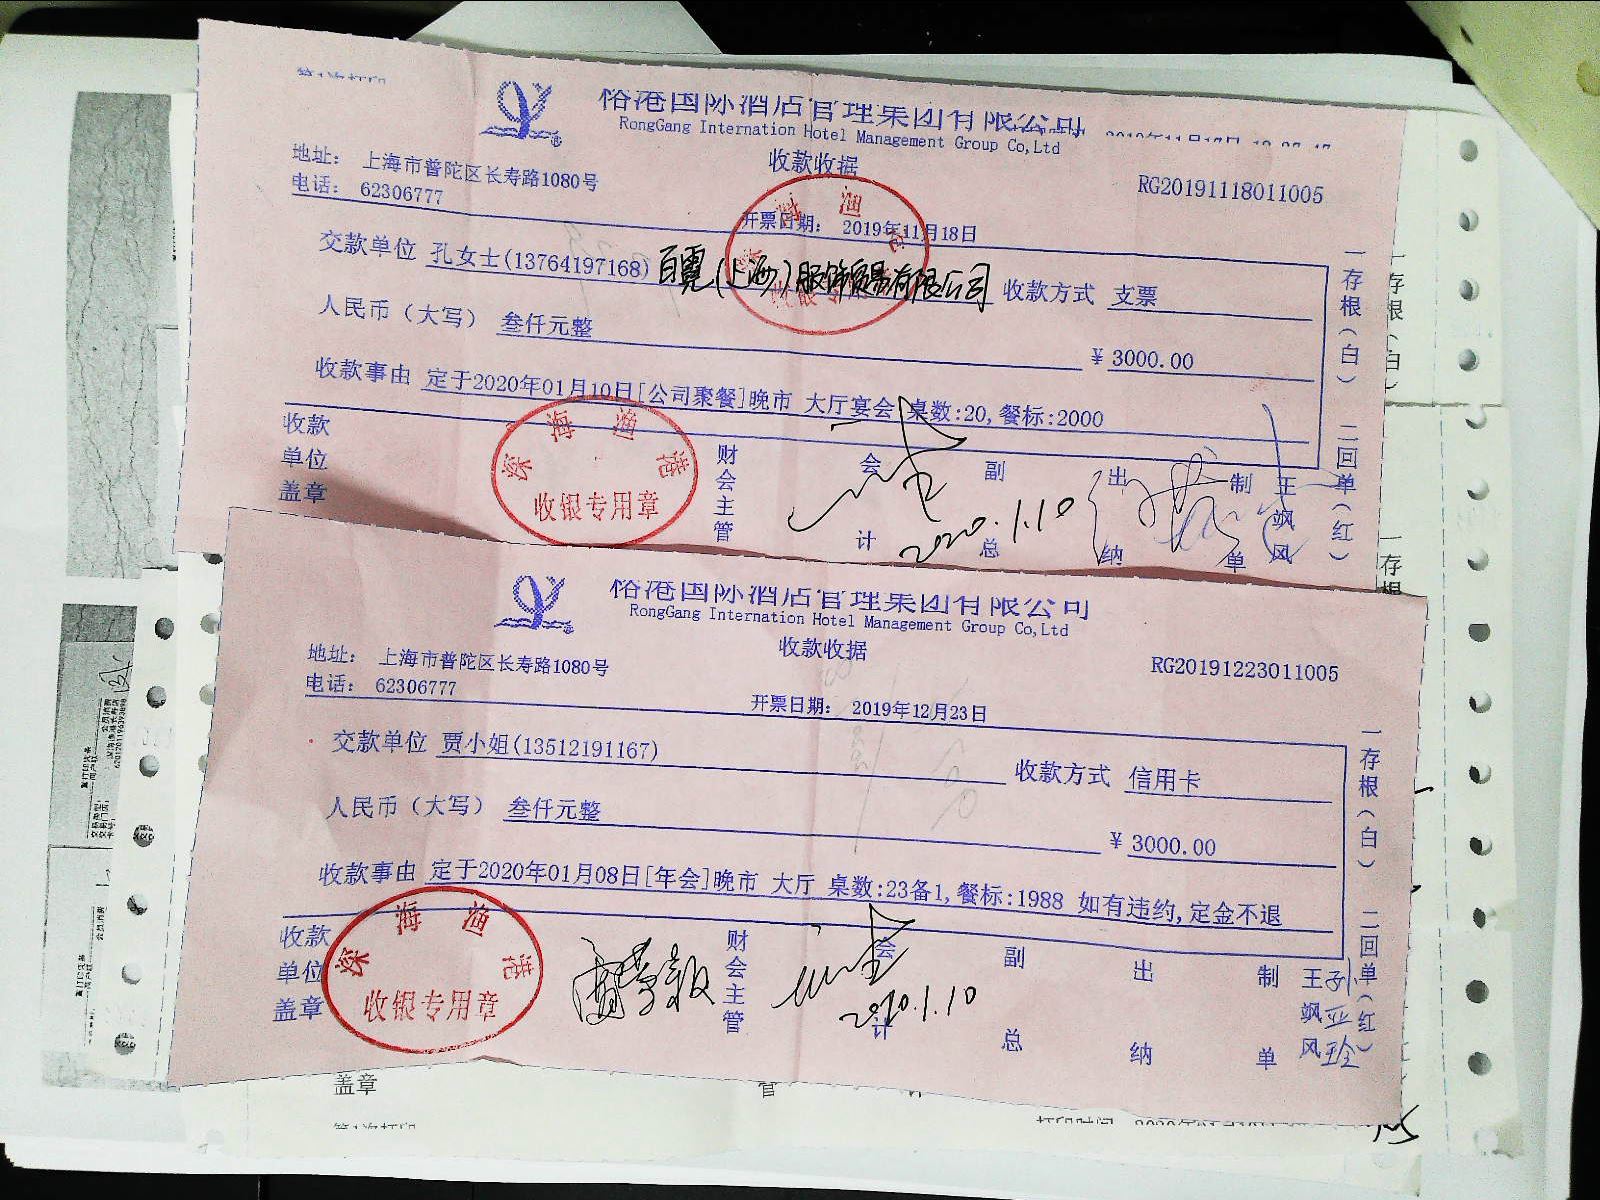 第1次打印
裕港国际酒店管理集团有限公司
RongGang Internation Hotel Management Group Co,Ltd
收款收据
地址： 上海市普陀区长寿路1080号
电话： 62306777
RG20191118011005
开票日期： 2019年11月18日
交款单位 孔女士(13764197168) 百霓(上海)服饰贸易有限公司 收款方式 支票
人民币（大写） 叁仟元整
¥ 3000.00
收款事由 定于2020年01月10日[公司聚餐]晚市 大厅宴会 桌数:20,餐标:2000
收款单位盖章
深海渔港
收银专用章
财会主管
会计
2020.1.10
副总
出纳
制单
王飒风
一存根（白） 二回单（红）
裕港国际酒店管理集团有限公司
RongGang Internation Hotel Management Group Co,Ltd
收款收据
地址： 上海市普陀区长寿路1080号
电话： 62306777
RG20191223011005
开票日期： 2019年12月23日
交款单位 贾小姐(13512191167) 收款方式 信用卡
人民币（大写） 叁仟元整
¥ 3000.00
收款事由 定于2020年01月08日[年会]晚市 大厅 桌数:23备1,餐标:1988 如有违约,定金不退
收款单位盖章
深海渔港
收银专用章
财会主管
会计
2020.1.10
副总
出纳
制单
王飒风
孙亚玲
一存根（白） 二回单（红）
盖章
第1次打印